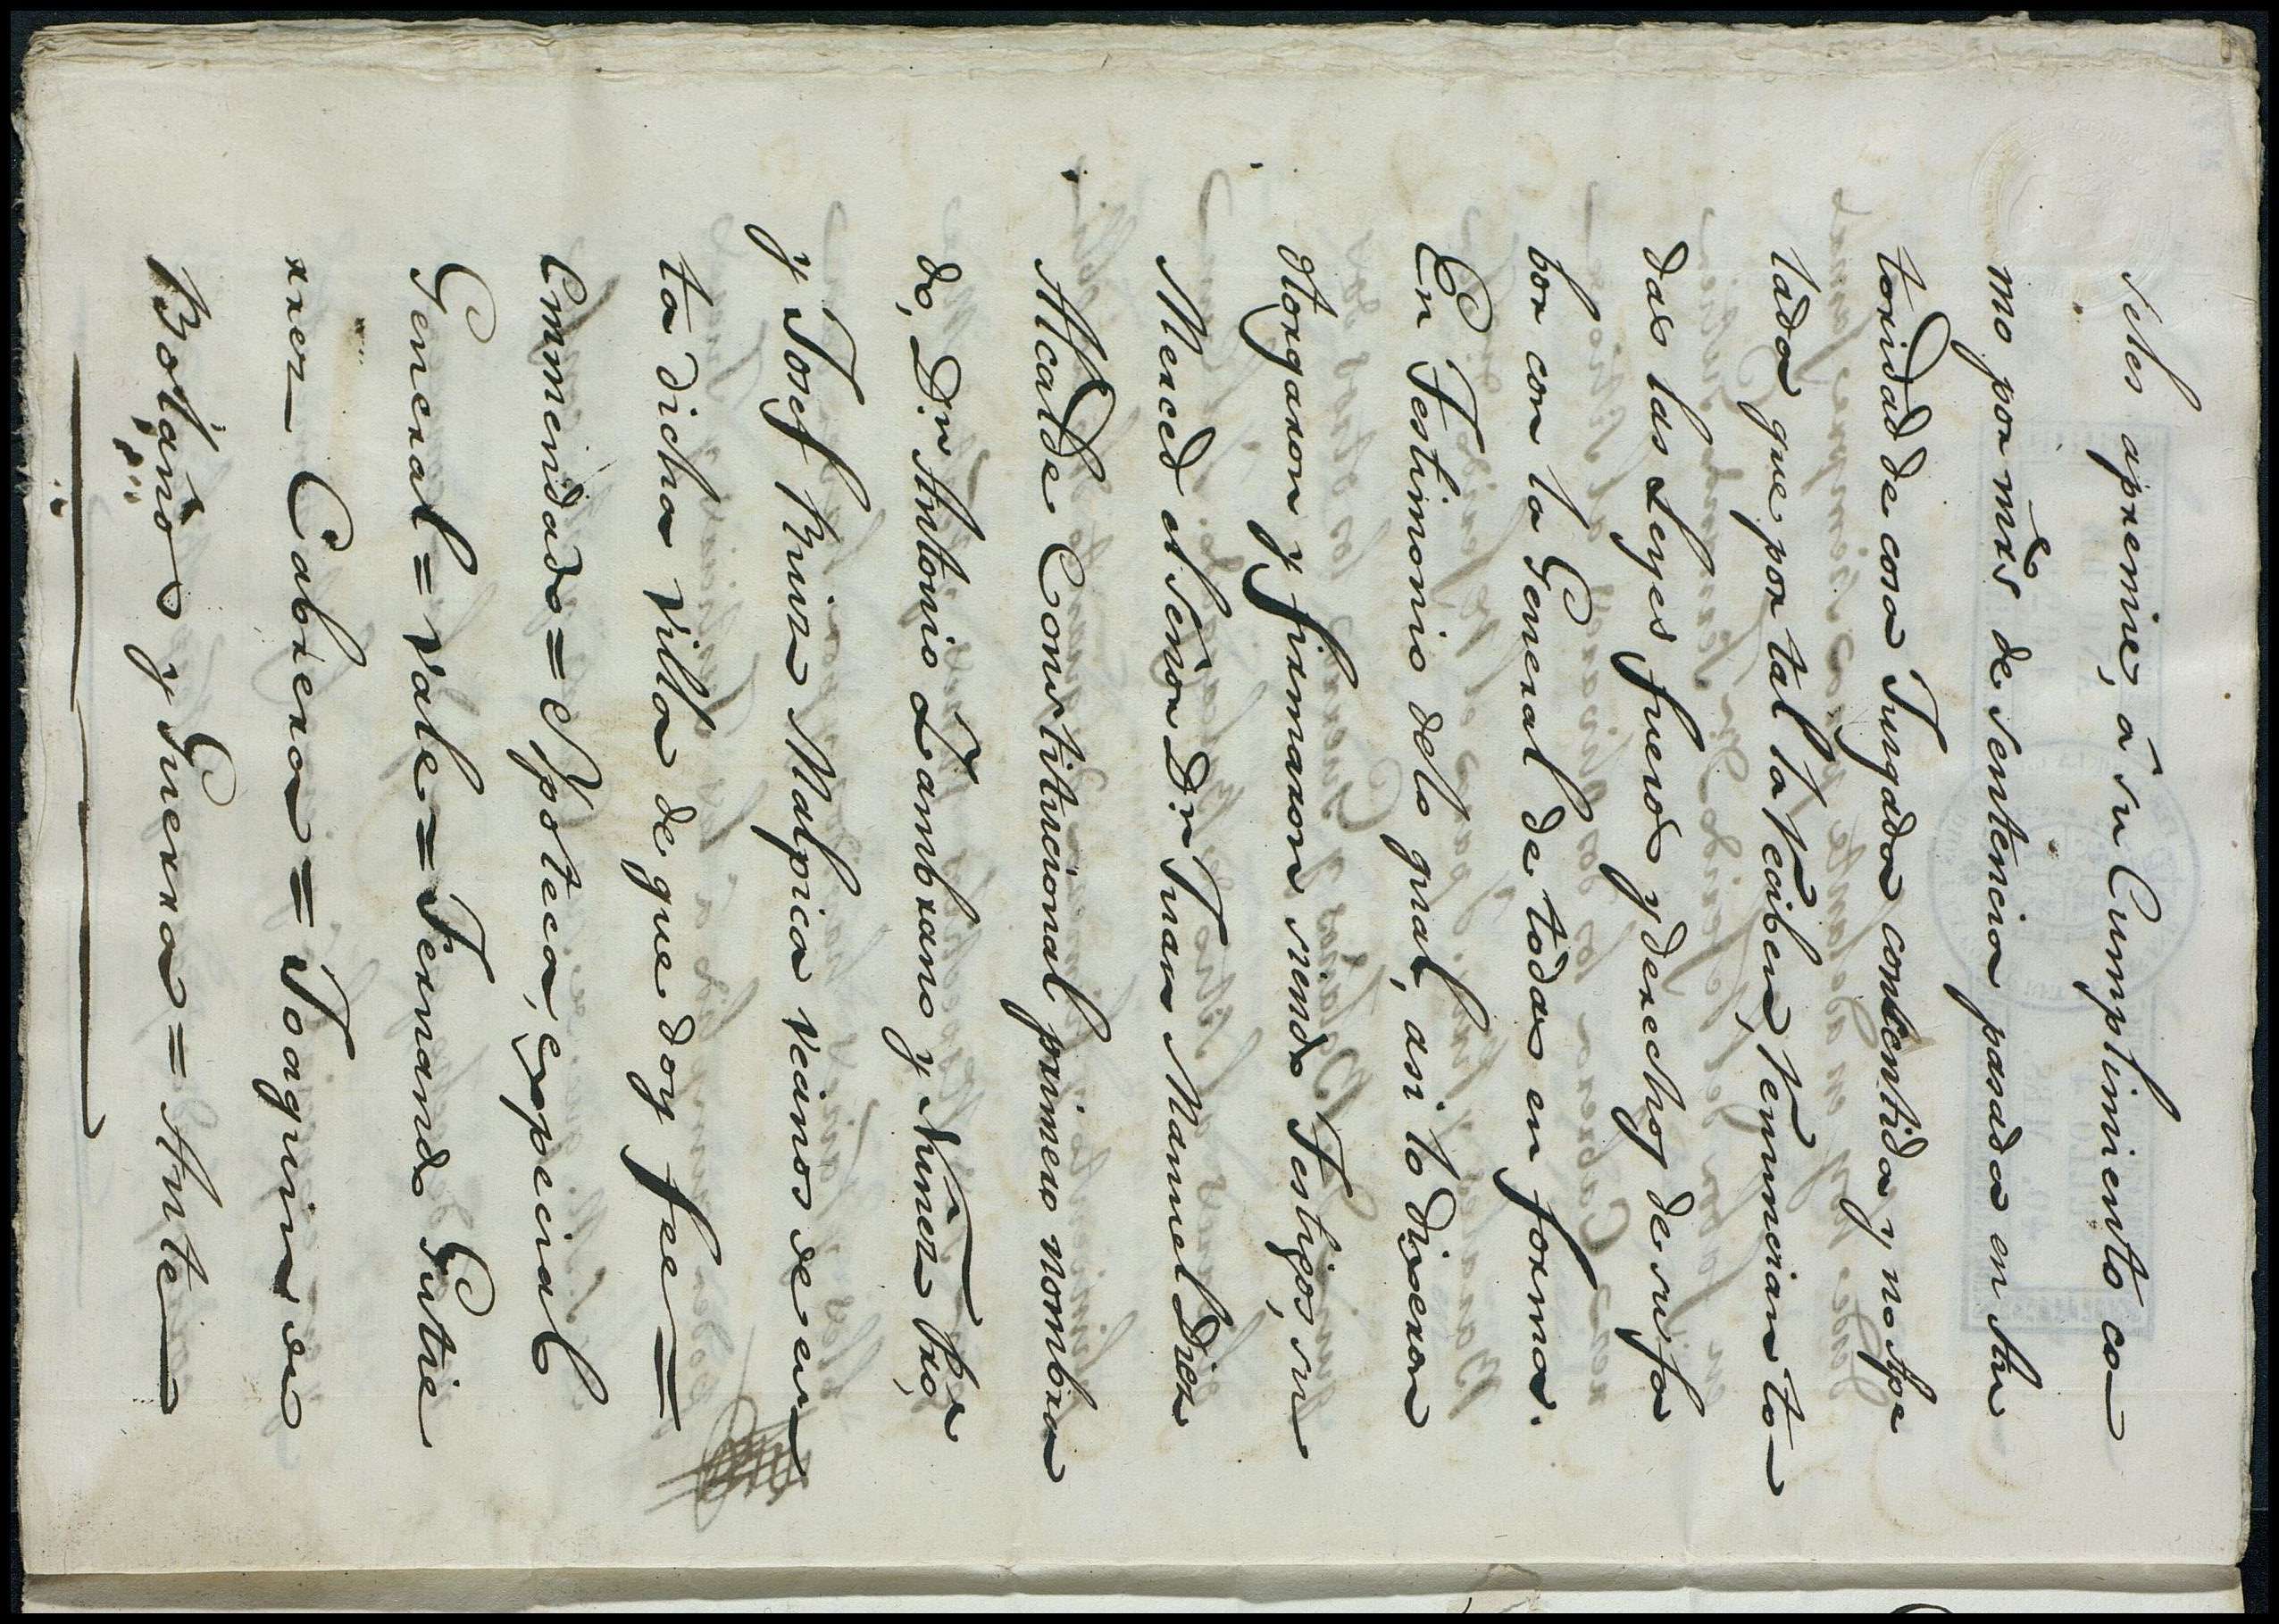 seles apremie, á su Cumplimiento co
mo por mrs de sentencia pasada en Au
toridad de cosa Jusgada consentida y no Ape
lada que por tal la reciben, renuncian to
das las Leyes fueros y derechos de su fa
bor con la General de todas en forma.
En Testimonio delo qual, asi lo Dixeron
otorgaron y firmaron siendo Testigos, su
Merced el Señor Dn Juan Manuel Diez
Alcalde Constitucional primero nombra
do, Dn Antonio Zambrano y Nuñez Pro,
y Josef Ruiz Malpica vecinos de en
ta dicha villa de que doy fee =
Emmendado = Ypoteca, especial
General = vale = Fernando Gutie
rrez Cabrera = Joaquin de
Bolaños y Guerra = Ante